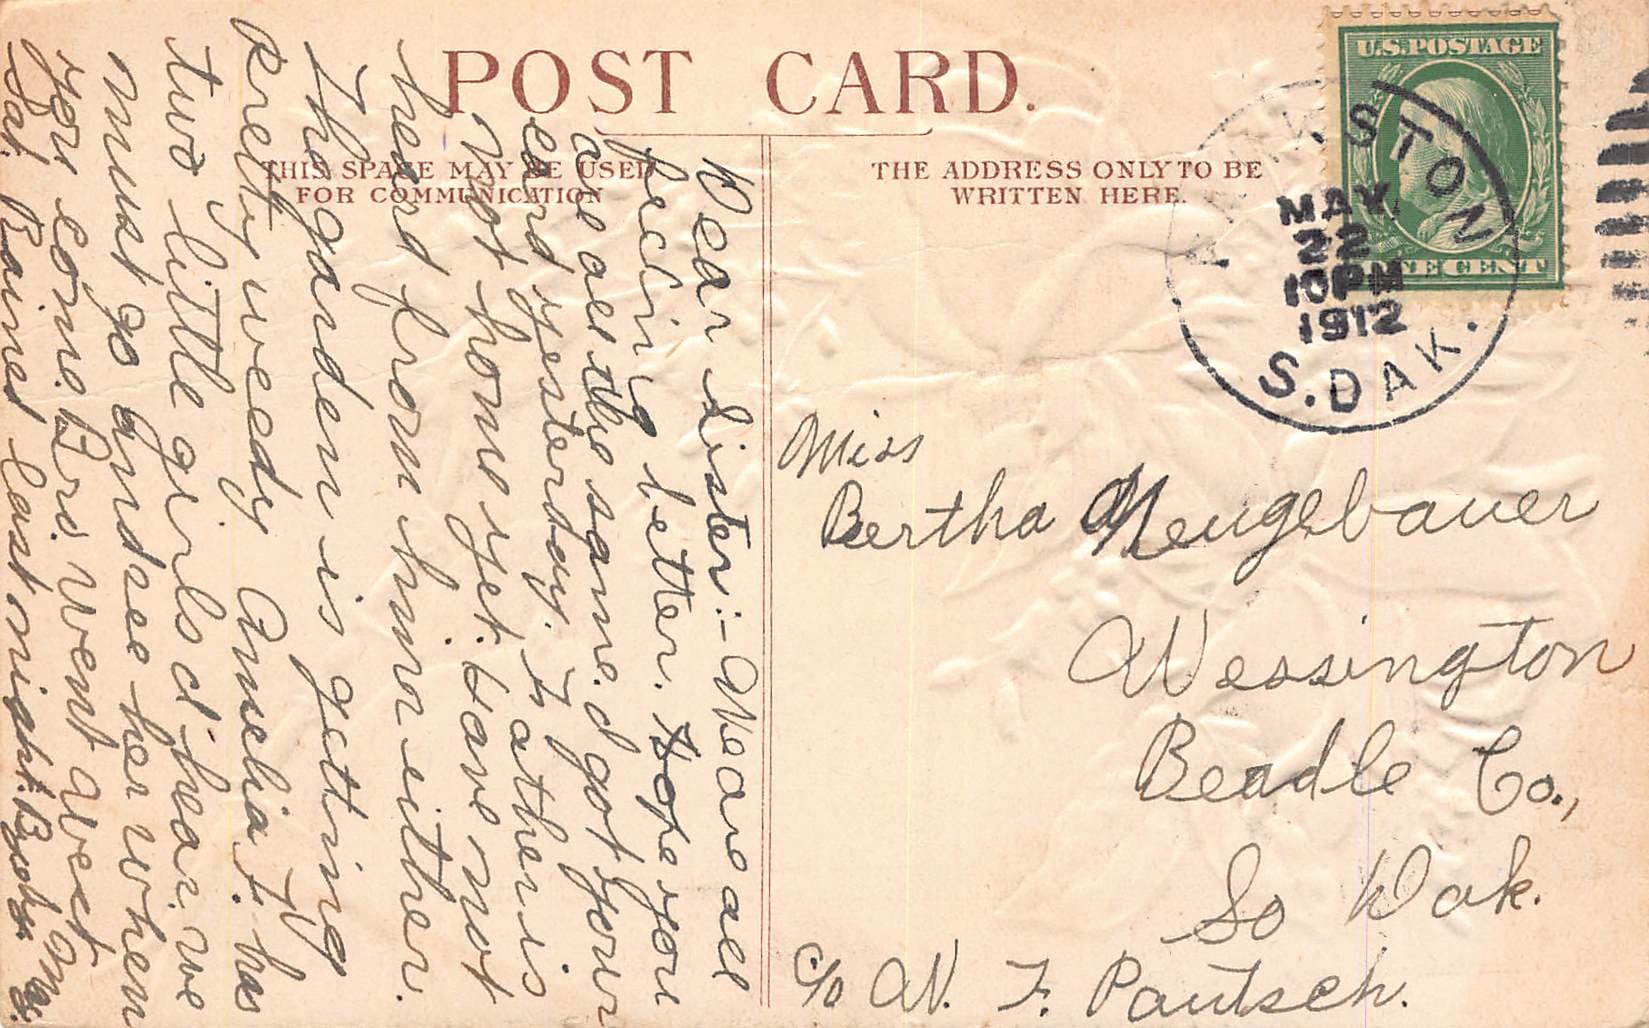 POST CARD.
THIS SPACE MAY BE USED
FOR COMMUNICATION
THE ADDRESS ONLY TO BE
WRITTEN HERE.
U.S. POSTAGE
ONE CENT
YANKSTON
MAY
22
10 PM
1912
S. DAK.
Dear Sister:- We are all
feeling better. Hope you
are all the same. I got your
card yesterday. Father is
not home yet. Have not
heard from him either.
The garden is getting
pretty weedy. Amelia F. has
two little girls I hear. We
must go and see her when
you come. Bros. went west
Sat. Rained last night.
Miss
Bertha Neugebauer
Wessington
Beadle Co.,
So Dak.
c/o W. F. Pautsch.